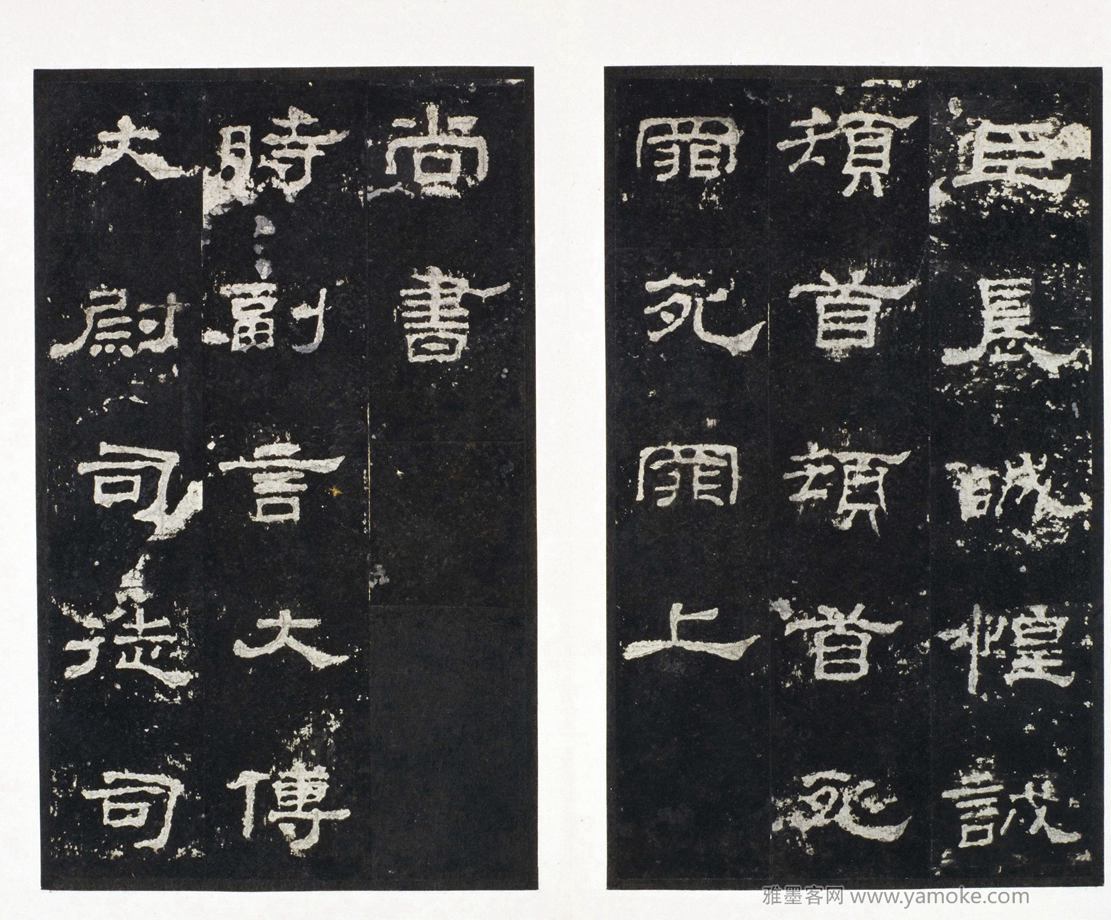 臣晨誠惶誠
頓首頓首死
罪死罪上
尚書
時副言大傅
大尉司徒司
雅墨客网 www.yamoke.com